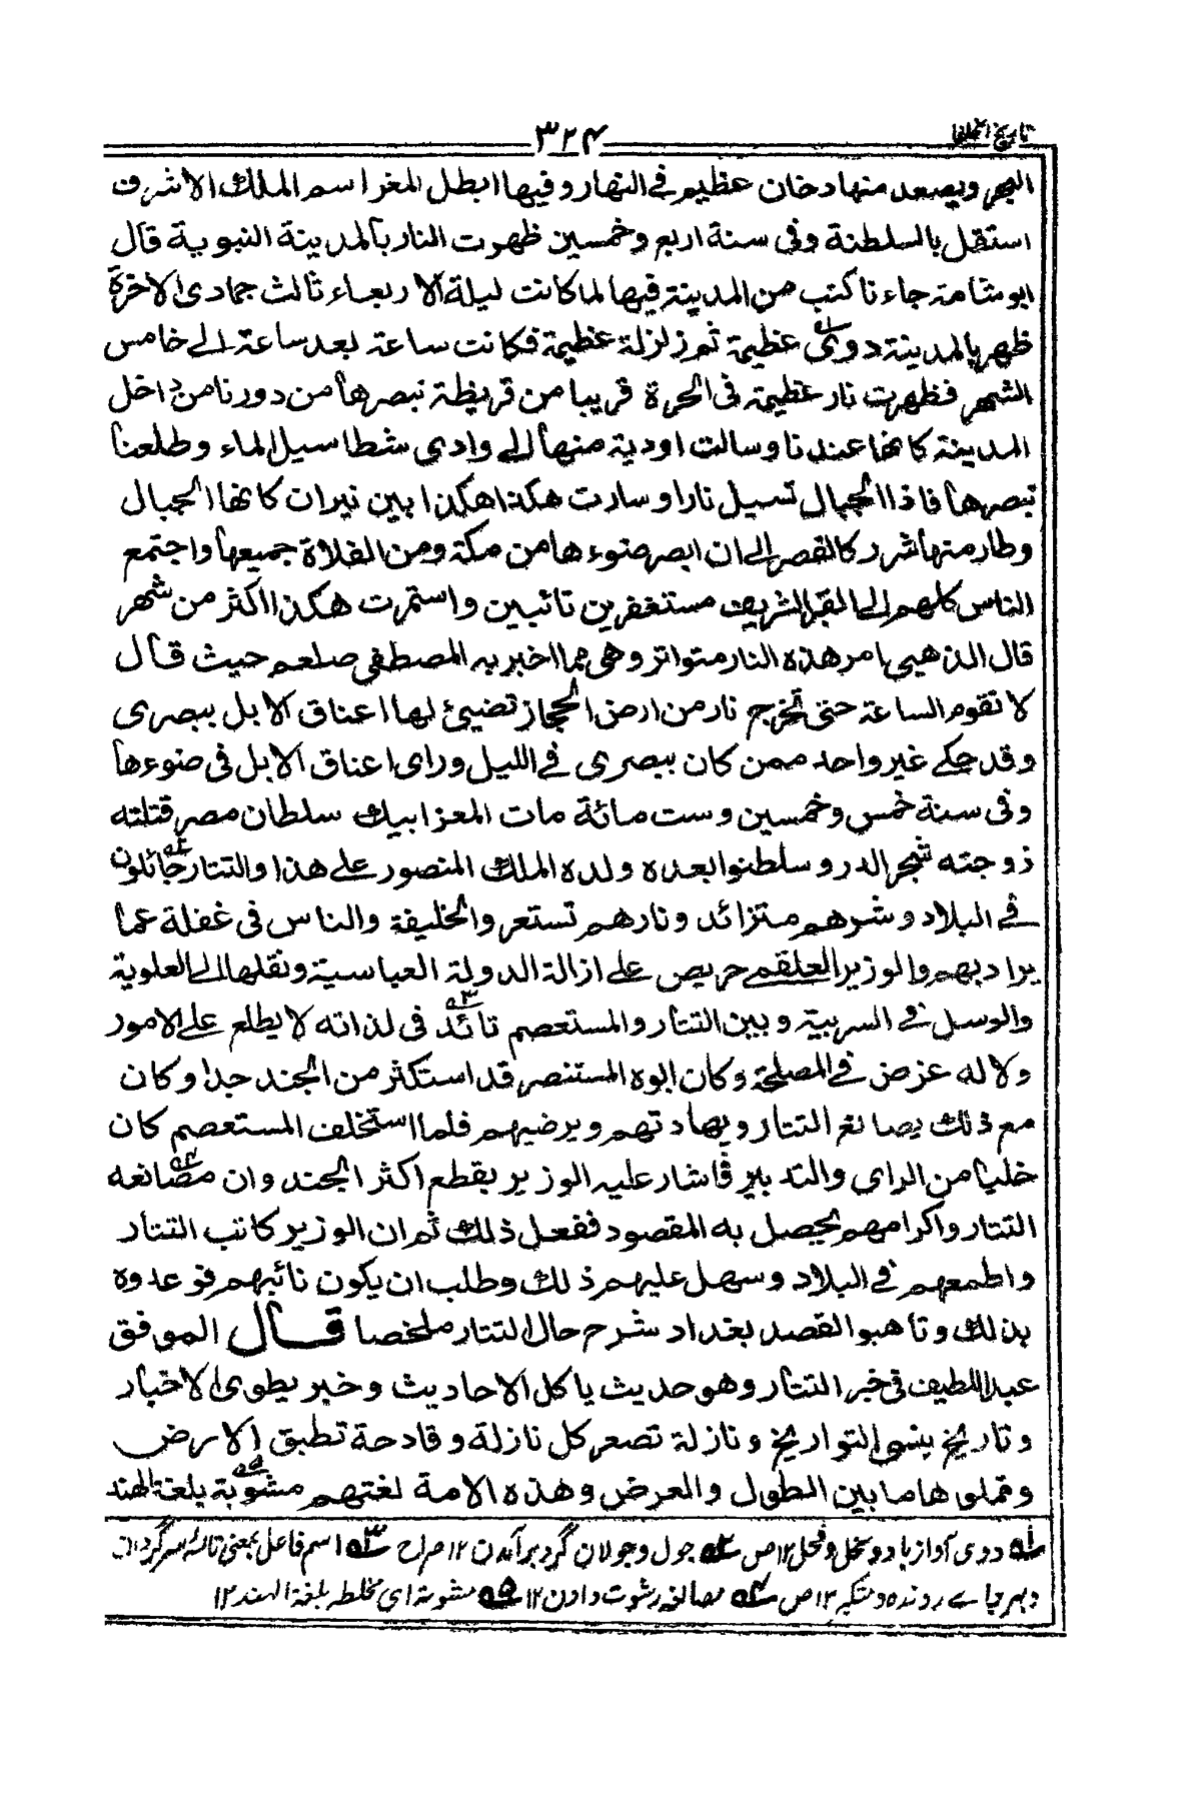 تاريخ الخلفا
٣٢٤
البحر ويصعد منها دخان عظيم في النهار وفيها ابطل المغز اسم الملك الاشرف
استقل بالسلطنة وفى سنة اربع وخمسين ظهرت النار بالمدينة النبوية قال
ابو شامة جاءنا كتب من المدينة فيها لما كانت ليلة الاربعاء ثالث جمادى الاخرة
ظهر بالمدينة دوى عظيم ثم زلزلة عظيمة فكانت ساعة بعد ساعة الى خامس
الشهر فظهرت نار عظيمة فى الحرة قريبا من قريظة نبصرها من دورنا من داخل
المدينة كانها عندنا وسالت اودية منها الى وادى شطا سيل الماء وطلعنا
نبصرها فاذا الجبال تسيل نارا وسارت هكذا هكذا بين نيران كانها الجبال
وطار منها شرر كالقصر الى ان ابصر ضوءها من مكة ومن الفلاة جميعها واجتمع
الناس كلهم الى القبر الشريف مستغفرين تائبين واستمرت هكذا اكثر من شهر
قال الذهبى امر هذه النار متواتر وهى مما اخبر به المصطفى صلعم حيث قال
لا تقوم الساعة حتى تخرج نار من ارض الحجاز تضيئ لها اعناق الابل ببصرى
وقد حكى غير واحد ممن كان ببصرى في الليل وراى اعناق الابل فى ضوءها
وفى سنة خمس وخمسين وست مائة مات المعز ايبك سلطان مصر قتلته
زوجته شجر الدر وسلطنوا بعده ولده الملك المنصور على هذا والتتار جائلون
في البلاد وشرهم متزائد ونارهم تستعر والخليفة والناس فى غفلة عما
يراد بهم والوزير العلقمى حريص على ازالة الدولة العباسية ونقلها الى العلوية
والرسل في السر بينه وبين التتار والمستعصم تائه فى لذاته لا يطلع على الامور
ولا له غرض في المصلحة وكان ابوه المستنصر قد استكثر من الجند جدا وكان
مع ذلك يصانع التتار ويهادنهم ويرضيهم فلما استخلف المستعصم كان
خليا من الراى والتدبير فاشار عليه الوزير بقطع اكثر الجند وان مصانعة
التتار واكرامهم يحصل به المقصود ففعل ذلك ثم ان الوزير كاتب التتار
واطمعهم في البلاد وسهل عليهم ذلك وطلب ان يكون نائبهم فوعدوه
بذلك وتاهبوا لقصد بغداد شرح حال التتار ملخصا قال الموفق
عبد اللطيف فى خبر التتار وهو حديث ياكل الاحاديث وخبر يطوى الاخبار
وتاريخ ينسى التواريخ ونازلة تصغر كل نازلة وفادحة تطبق الارض
وتملوها ما بين الطول والعرض وهذه الامة لغتهم مشوبة بلغة الهند
ل دوى آواز باد ونحل وفحل ١٢ ص ٢ جول وجولان گرد برآمدن ١٢ صراح ٣ اسم فاعل بمعنى تائه سرگردان
وبهر جاے رونده ومتكبر ١٢ ص ٤ مصانعة رشوت دادن ١٢ ٥ مشوبة اى مخلطة بلغة الهند ١٢